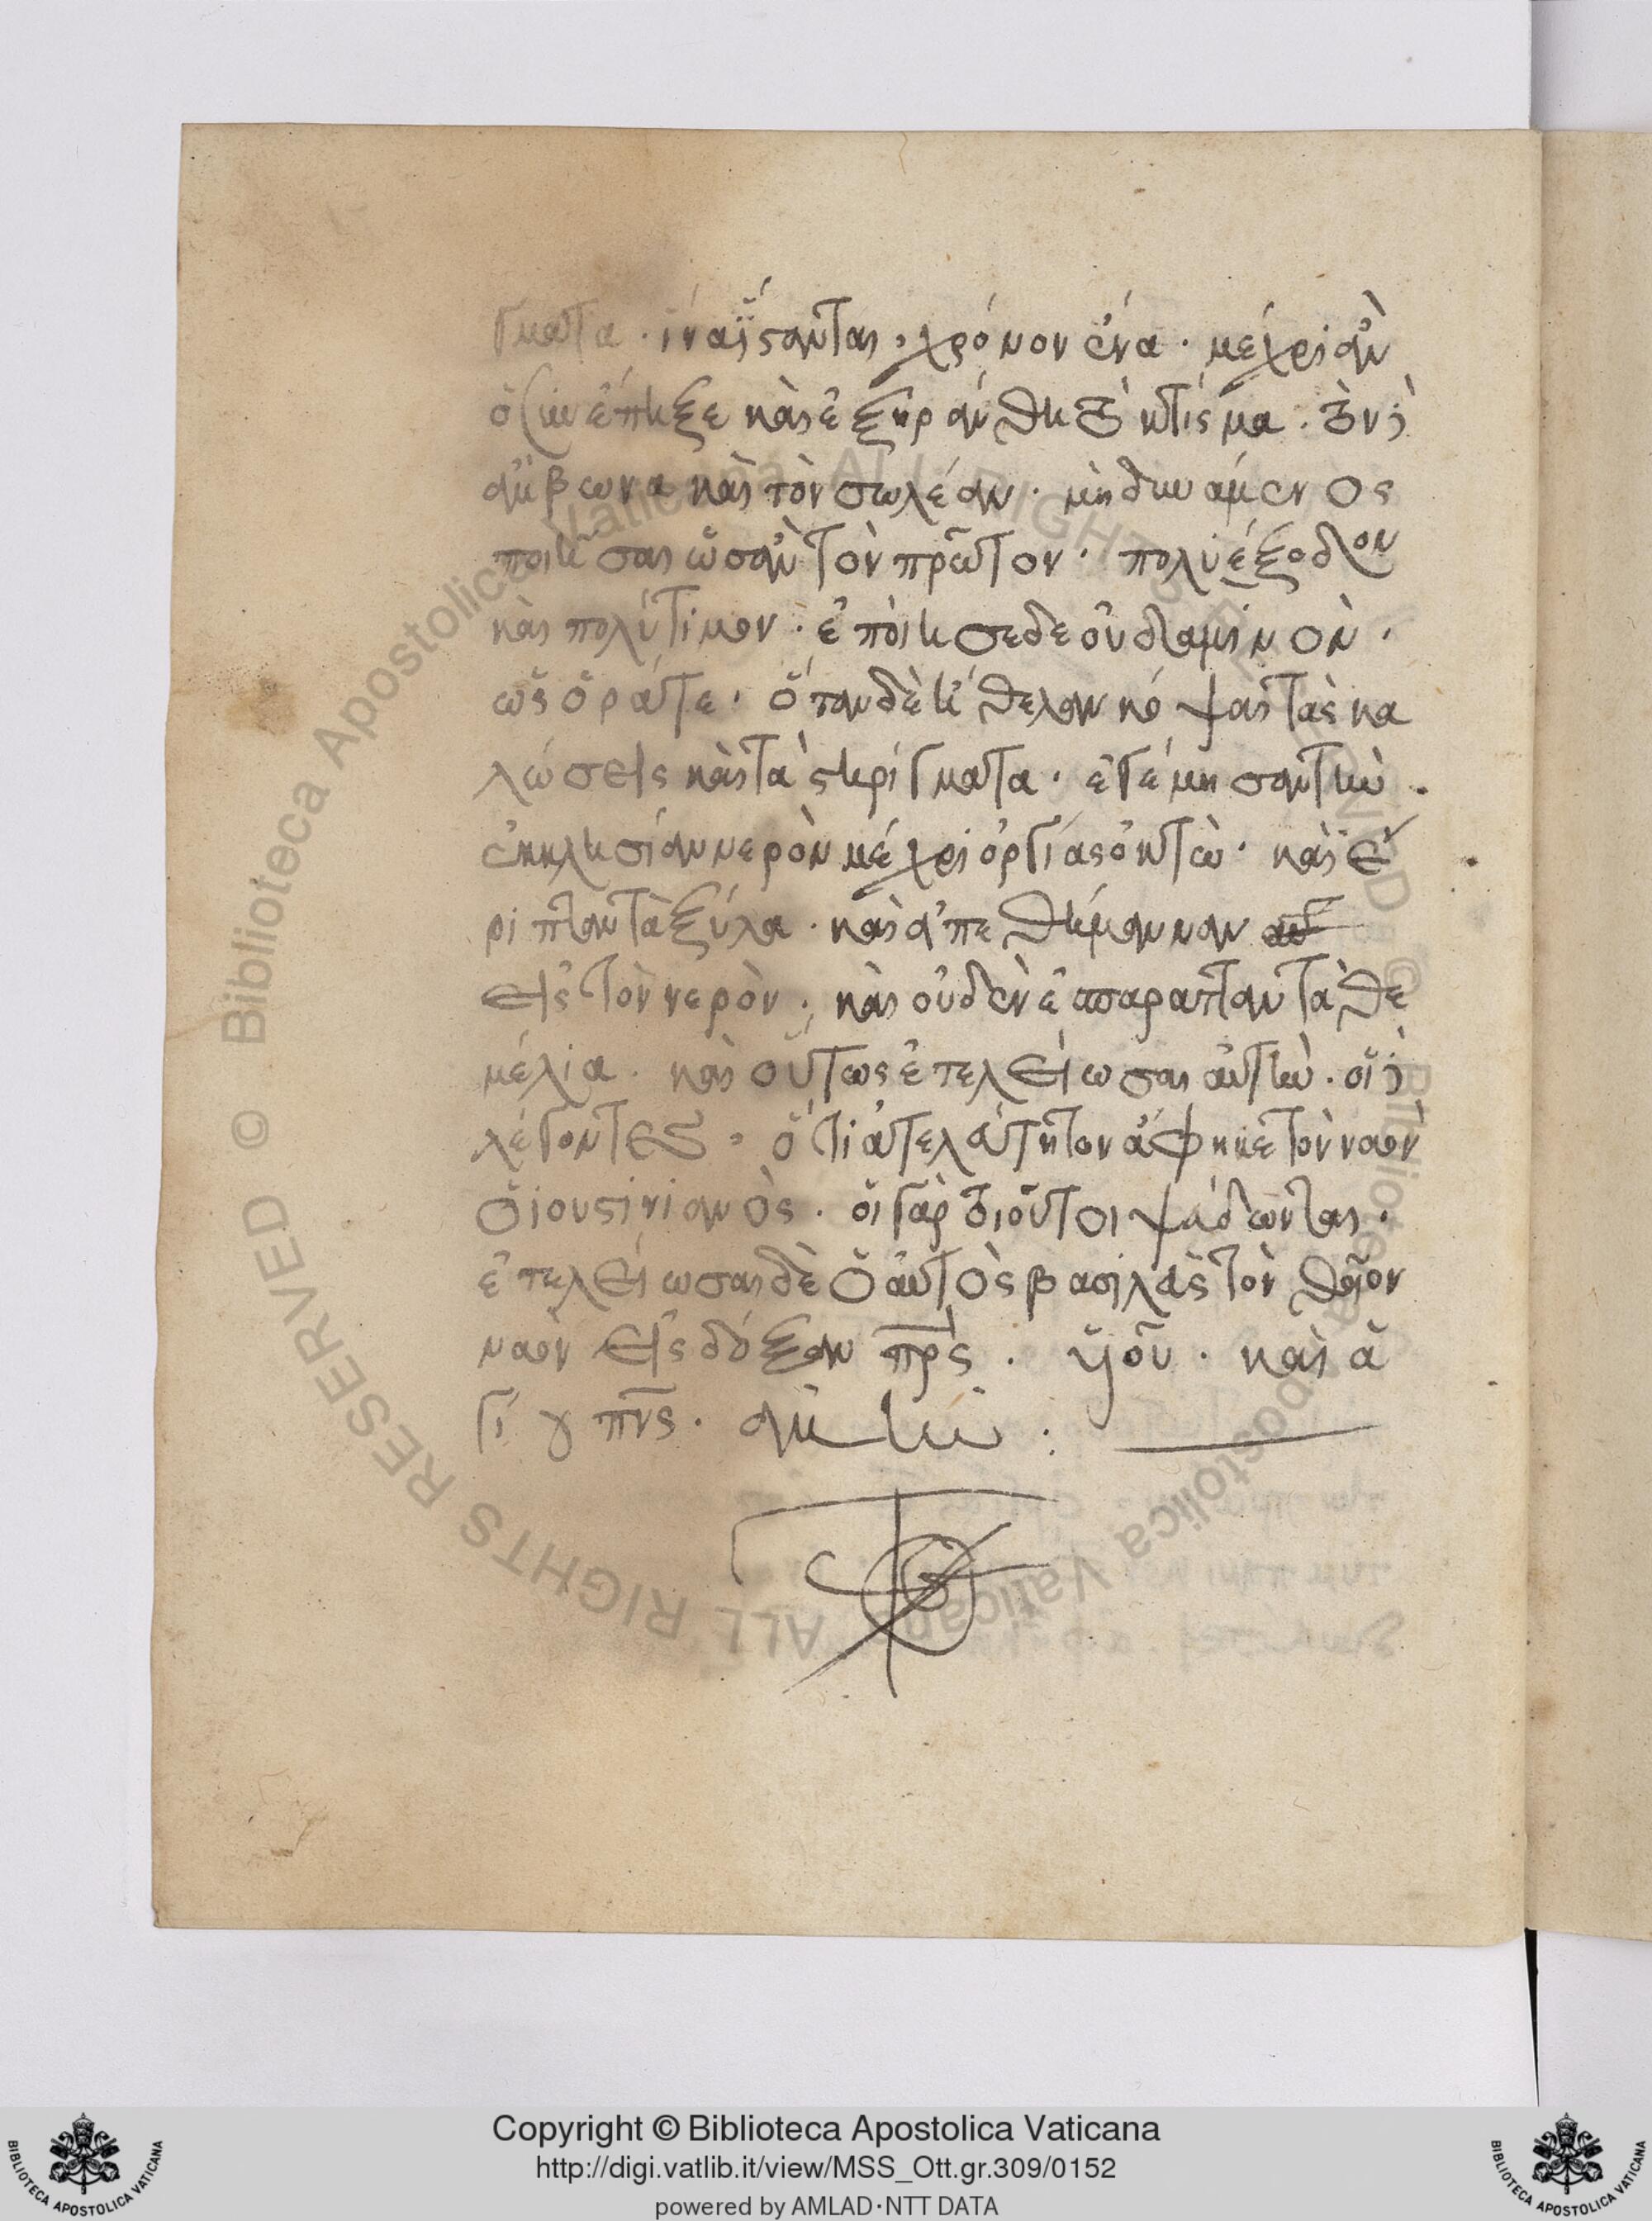 γματα · ἵνα ἵστανται · χρόνον ἕνα · μέχρις ἂν
ὅσην ἔπηξε καὶ ἐξηράνθη τὸ κτίσμα · τὸν δὲ
ἄμβωνα καὶ τὸν σωλέαν · μὴ δυνάμενος
ποιῆσαι ὡσὰν τὸν πρῶτον · πολυέξοδον
καὶ πολύτιμον · ἐποίησε δε οὐδαμινὸν ·
ὡς ὁρᾶτε · ὅταν δὲ ἤθελαν κόψαι τὰς κα
λώσεις καὶ τὰ στηρίγματα · ἐγέμησαν τὴν
ἐκκλησίαν νερὸν μέχρι ὀργίας ὀκτὼ · καὶ ἔ
ριπταν τὰ ξύλα · καὶ ἀπεθέμαναν
εἰς τὸν νερὸν · καὶ οὐδὲν ἐσπάραπταν τὰ θε
μέλια · καὶ οὕτως ἐτελείωσαν αὐτὴν · οἱ δὲ
λέγοντες · ὅτι ἀτελεύτητον ἀφῆκε τὸν ναὸν
ὁ ἰουστινιανὸς · οἱ γὰρ τοιοῦτοι ψεύδωνται ·
ἐτελείωσαι δὲ ὁ αὐτὸς βασιλεὺς τὸν θεῖον
ναὸν εἰς δόξαν πρς · ὑιοῦ · καὶ ἁ
γίου πνς · ἀμὴν :
Copyright © Biblioteca Apostolica Vaticana
http://digi.vatlib.it/view/MSS_Ott.gr.309/0152
powered by AMLAD·NTT DATA
BIBLIOTECA APOSTOLICA VATICANA
BIBLIOTECA APOSTOLICA VATICANA
Biblioteca Apostolica Vaticana ALL RIGHTS RESERVED ©
Biblioteca Apostolica Vaticana ALL RIGHTS RESERVED ©